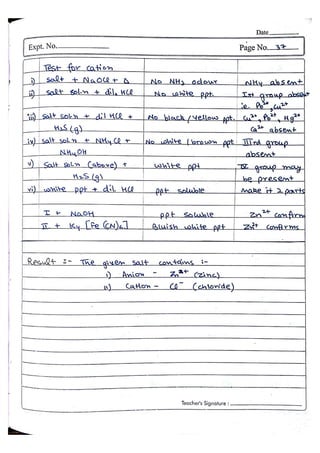 Date
Expt. No.
Page No. 37
Test for cation
i) Salt + NaOH + Δ No NH3 odour NH4 absent
ii) Salt soln + dil. HCl No white ppt. Ist group absent
i.e. Pb2+, Cu2+
iii) salt soln + dil HCl + No black/yellow ppt. Cu2+, Pb2+, Hg2+
H2S (g) absent
iv) salt soln + NH4Cl + No white/brown ppt IIIrd group
NH4OH absent
v) Salt soln (above) + white ppt IV group may
H2S (g) be present
vi) white ppt + dil HCl ppt soluble make it 2 parts
I + NaOH ppt soluble Zn2+ confirm
II + K4 [Fe (CN)6] Bluish white ppt Zn2+ confirms
Result :- The given salt contains :-
i) Anion - Zn2+ (zinc)
ii) Cation - Cl- (chloride)
Teacher's Signature :